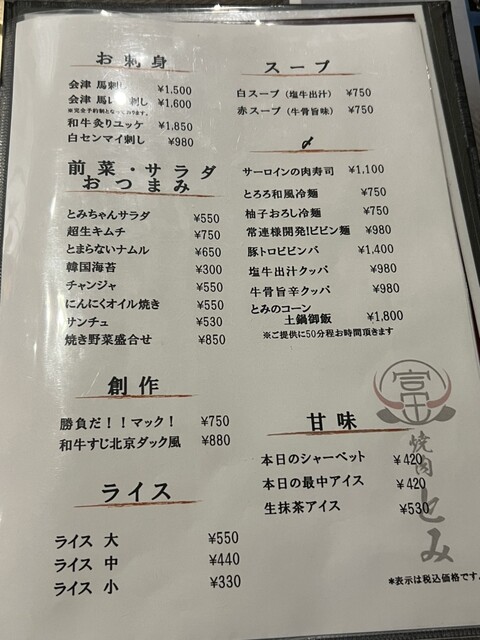 お刺身
会津 馬刺し ¥1,500
会津 馬レバ刺し ¥1,600
※完全予約制となっております。
和牛炙りユッケ ¥1,850
白センマイ刺し ¥980
前菜・サラダ
おつまみ
とみちゃんサラダ ¥550
超生キムチ ¥750
とまらないナムル ¥650
韓国海苔 ¥300
チャンジャ ¥550
にんにくオイル焼き ¥550
サンチュ ¥530
焼き野菜盛合せ ¥850
創作
勝負だ!!マック! ¥750
和牛すじ北京ダック風 ¥880
ライス
ライス 大 ¥550
ライス 中 ¥440
ライス 小 ¥330
スープ
白スープ(塩牛出汁) ¥750
赤スープ(牛骨旨味) ¥750
〆
サーロインの肉寿司 ¥1,100
とろろ和風冷麺 ¥750
柚子おろし冷麺 ¥750
常連様開発!!ビビン麺 ¥980
豚トロビビンバ ¥1,400
塩牛出汁クッパ ¥980
牛骨旨辛クッパ ¥980
とみのコーン
土鍋御飯 ¥1,800
※ご提供に50分程お時間頂きます
甘味
本日のシャーベット ¥420
本日の最中アイス ¥420
生抹茶アイス ¥530
富
焼肉とみ
*表示は税込価格です。